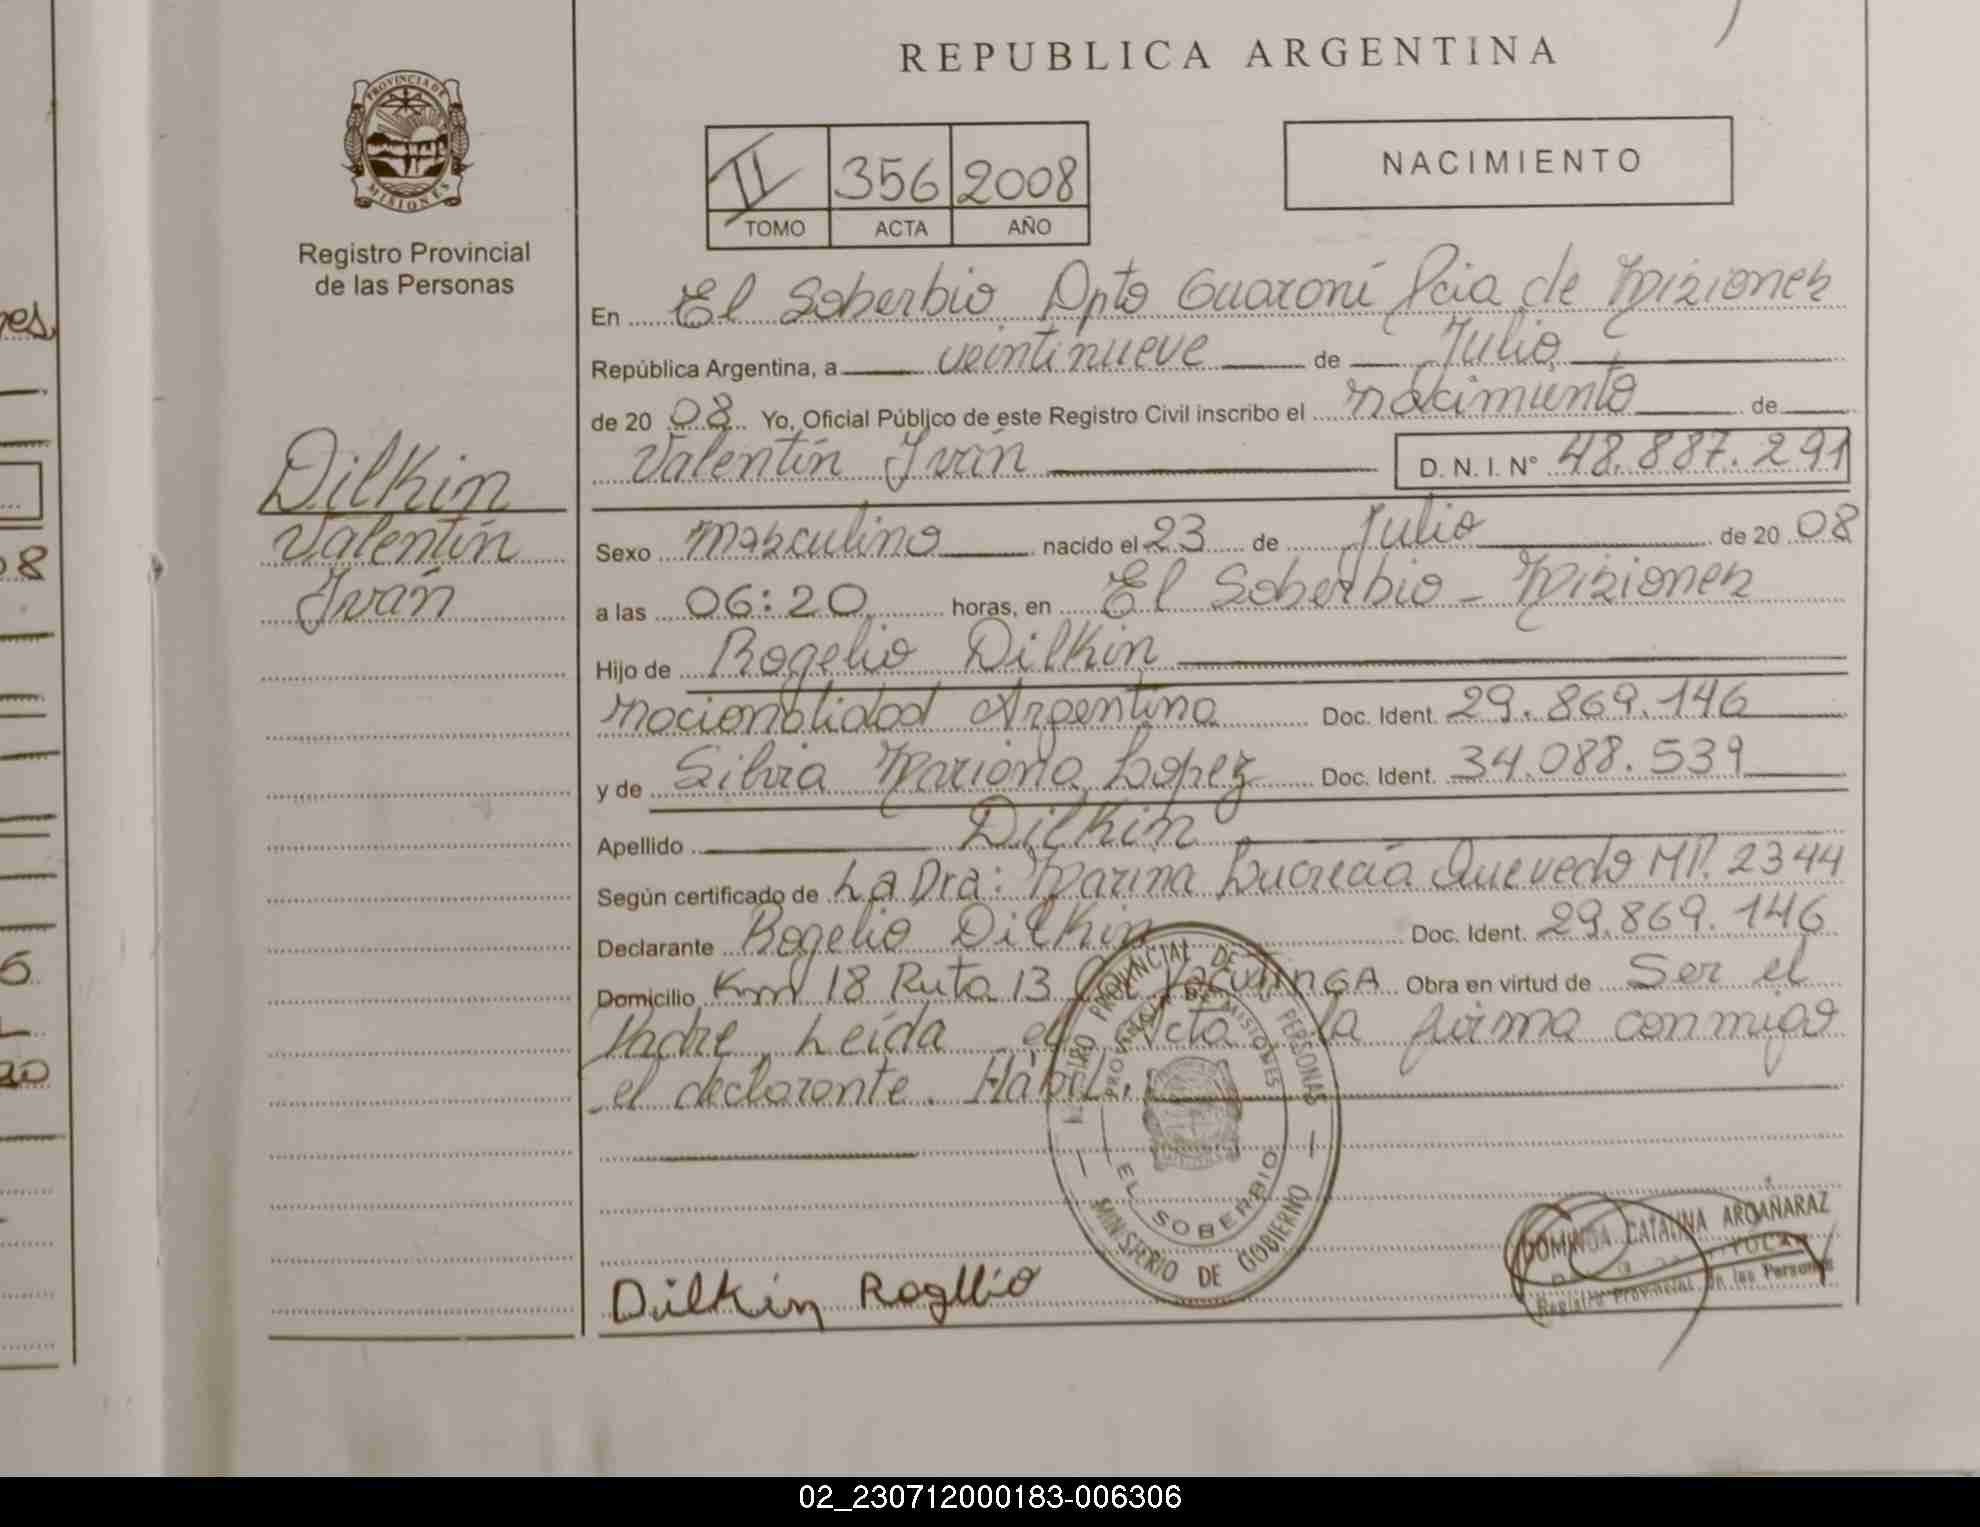 REPUBLICA ARGENTINA
PROVINCIA DE
MISIONES
Registro Provincial
de las Personas
II 356 2008
TOMO ACTA AÑO
NACIMIENTO
En El Soberbio Dpto Guaraní Pcia de Misiones
República Argentina, a veintinueve de Julio
de 20 08 Yo, Oficial Público de este Registro Civil inscribo el nacimiento de
Valentín Iván D. N. I. N° 48.887.291
Dilkin
Valentín
Iván
Sexo masculino nacido el 23 de Julio de 20 08
a las 06:20 horas, en El Soberbio - Misiones
Hijo de Rogelio Dilkin
nacionalidad Argentina Doc. Ident. 29.869.146
y de Silvia Mariana Lopez Doc. Ident. 34.088.539
Apellido Dilkin
Según certificado de La Dra: Marina Lucrecia Quevedo MP. 2344
Declarante Rogelio Dilkin Doc. Ident. 29.869.146
Domicilio Km 18 Ruta 13 Obra en virtud de Ser el
Padre Leída el Acta la firma conmigo
el declarante. Hábil.
REGISTRO PROVINCIAL DE LAS PERSONAS
PROVINCIA DE MISIONES
EL SOBERBIO
MINISTERIO DE GOBIERNO
Dilkin Rogelio
DOMINGA CATALINA ARGAÑARAZ
Registro Provincial de las Personas
es
08
5
02_230712000183-006306